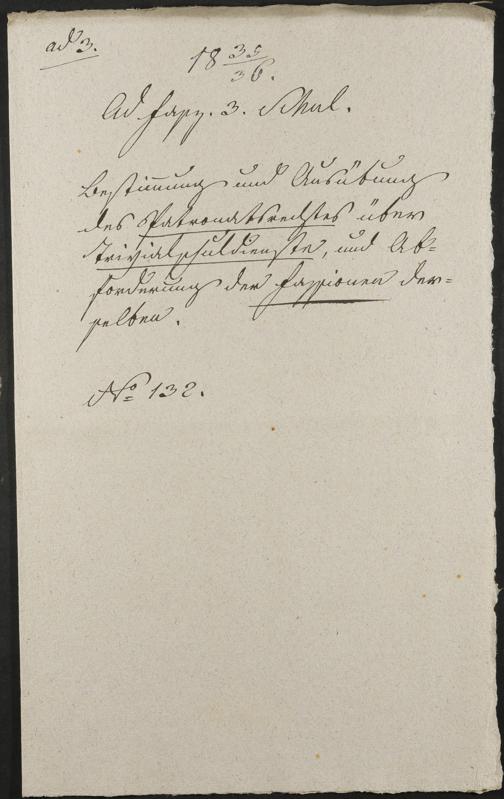 ad 3.
18 35/36.
Ad Fasz. 3. Schul.
Bestimmung und Ausübung
des Patronatsrechtes über
Trivialschuldienste, und Ab=
forderung der Fassionen der=
selben.
No 132.